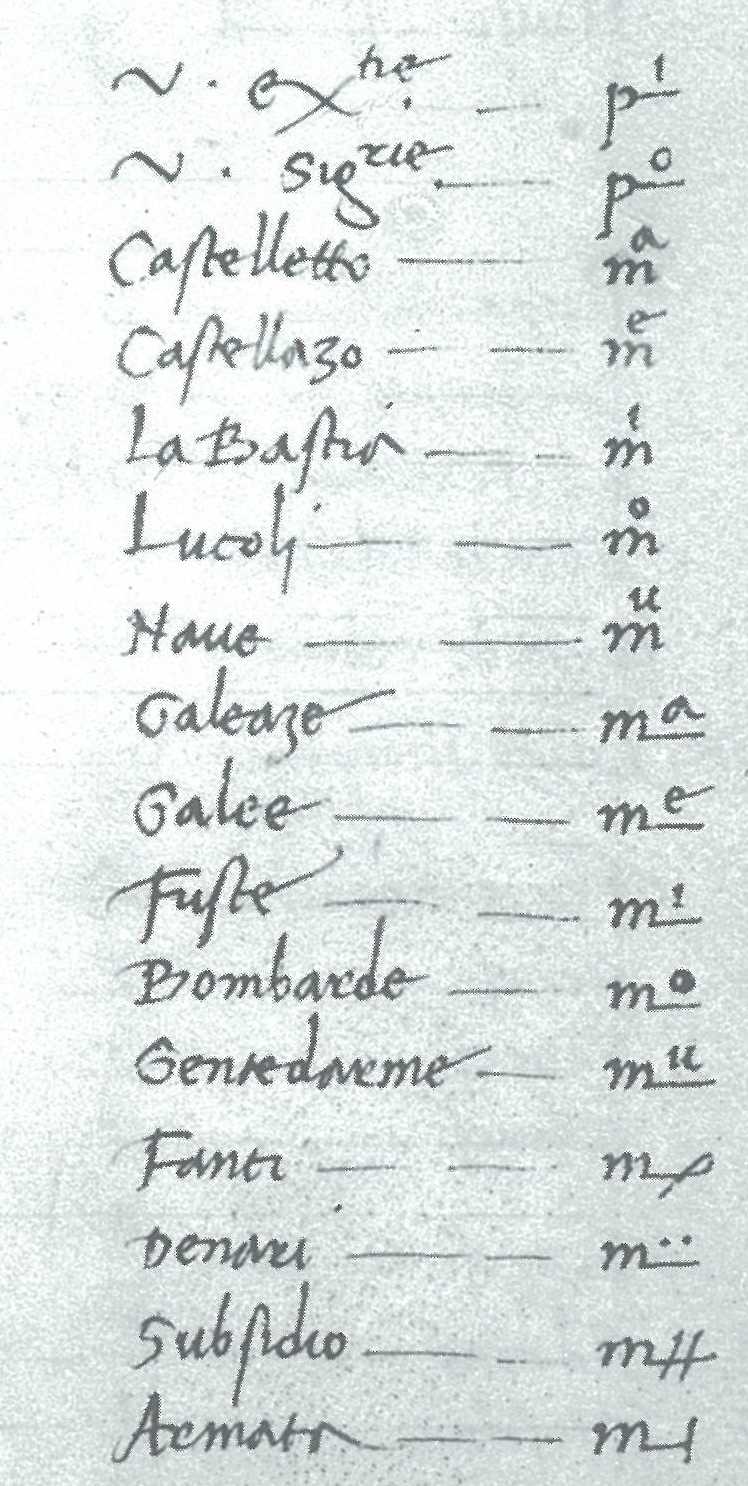 ~ . ex^tie . — p^i
~ . Sig^rie . — p^o
Castelletto — m^a
Castellazo — — m^e
La Bastia — — m^i
Lucolj — — m^o
Naue — — m^u
Galeaze — — m^a
Galee — — m^e
Fuste — — m^i
Bombarde — m^o
Gentedarme — m^u
Fanti — — m
Denari — — m¨
Subsidio — — m
Armata — — m